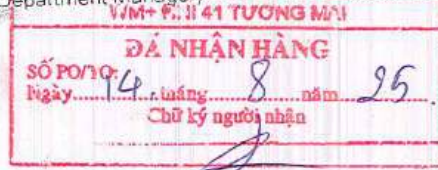 Department Manager
VM+ 41 TƯƠNG MAI
ĐÃ NHẬN HÀNG
SỐ PO/TO:
Ngày 14 tháng 8 năm 25
Chữ ký người nhận